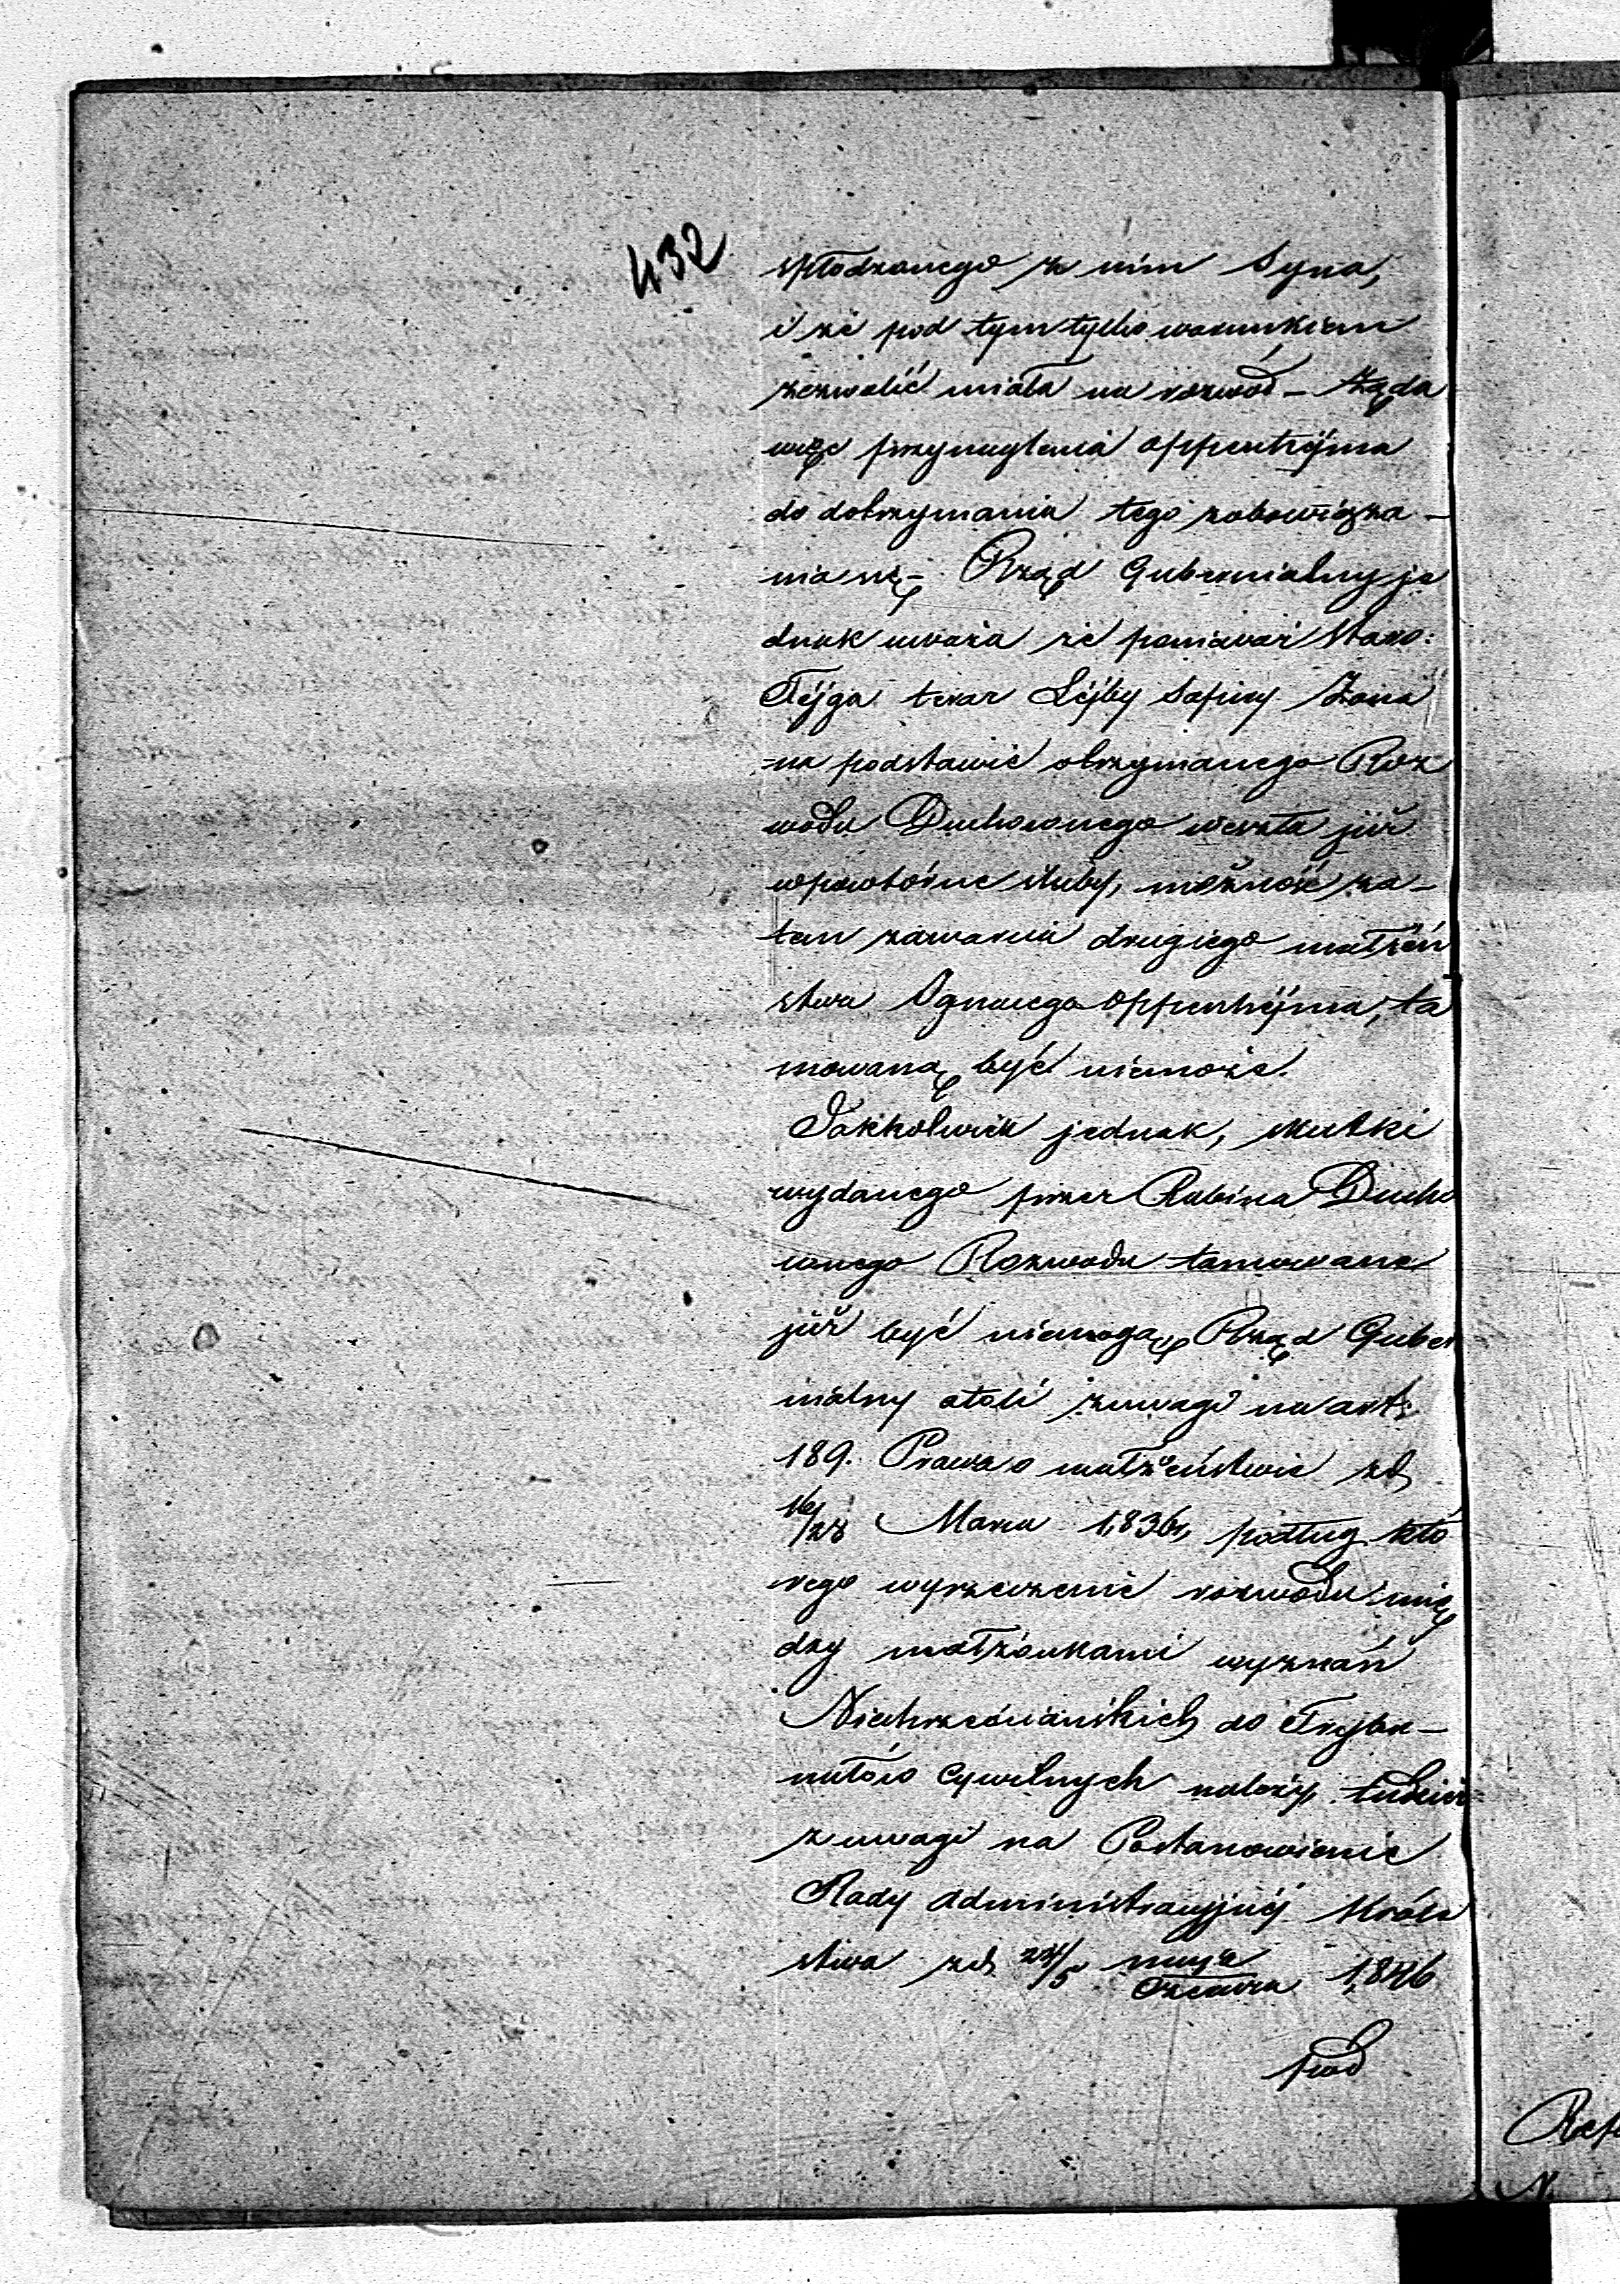 432
spłodzonego z nim Syna,
i że pod tym tylko warunkiem
zezwolić miała na rozwód – żąda
więc przynaglenia Oppenhejma
do dotrzymania tego zobowiąza –
nia się – Rząd Gubernialny je
dnak uważa że ponieważ Staro:
Fejga teraz Lejby Safiry Żona
na podstawie otrzymanego Roz
wodu Duchownego weszła już
w powtórne śluby, możność za –
tem zawarcia drugiego małżeń
stwa Ignacego Oppenhejma, ta
mowaną być niemoże.
Jakkolwiek jednak, skutki
wydanego przez Rabina Ducho
wnego Rozwodu tamowane
już być niemogą, Rząd Guber
nialny atoli z uwagi na art:
189. Prawa o małżeństwie z d,
16/28 Marca 1,836 r, podług któ
rego wyrzeczenie rozwodu mię
dzy małżonkami wyznań
Niechrześciańskich do Trybu –
nałów Cywilnych należy, tudzież
z uwagi na Postanowienie
Rady Administracyjnéj Króle
stwa z d, 24/5 maja/Czerwca 1,846
pod
Rep
N